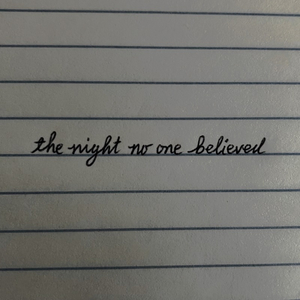 the night no one believed